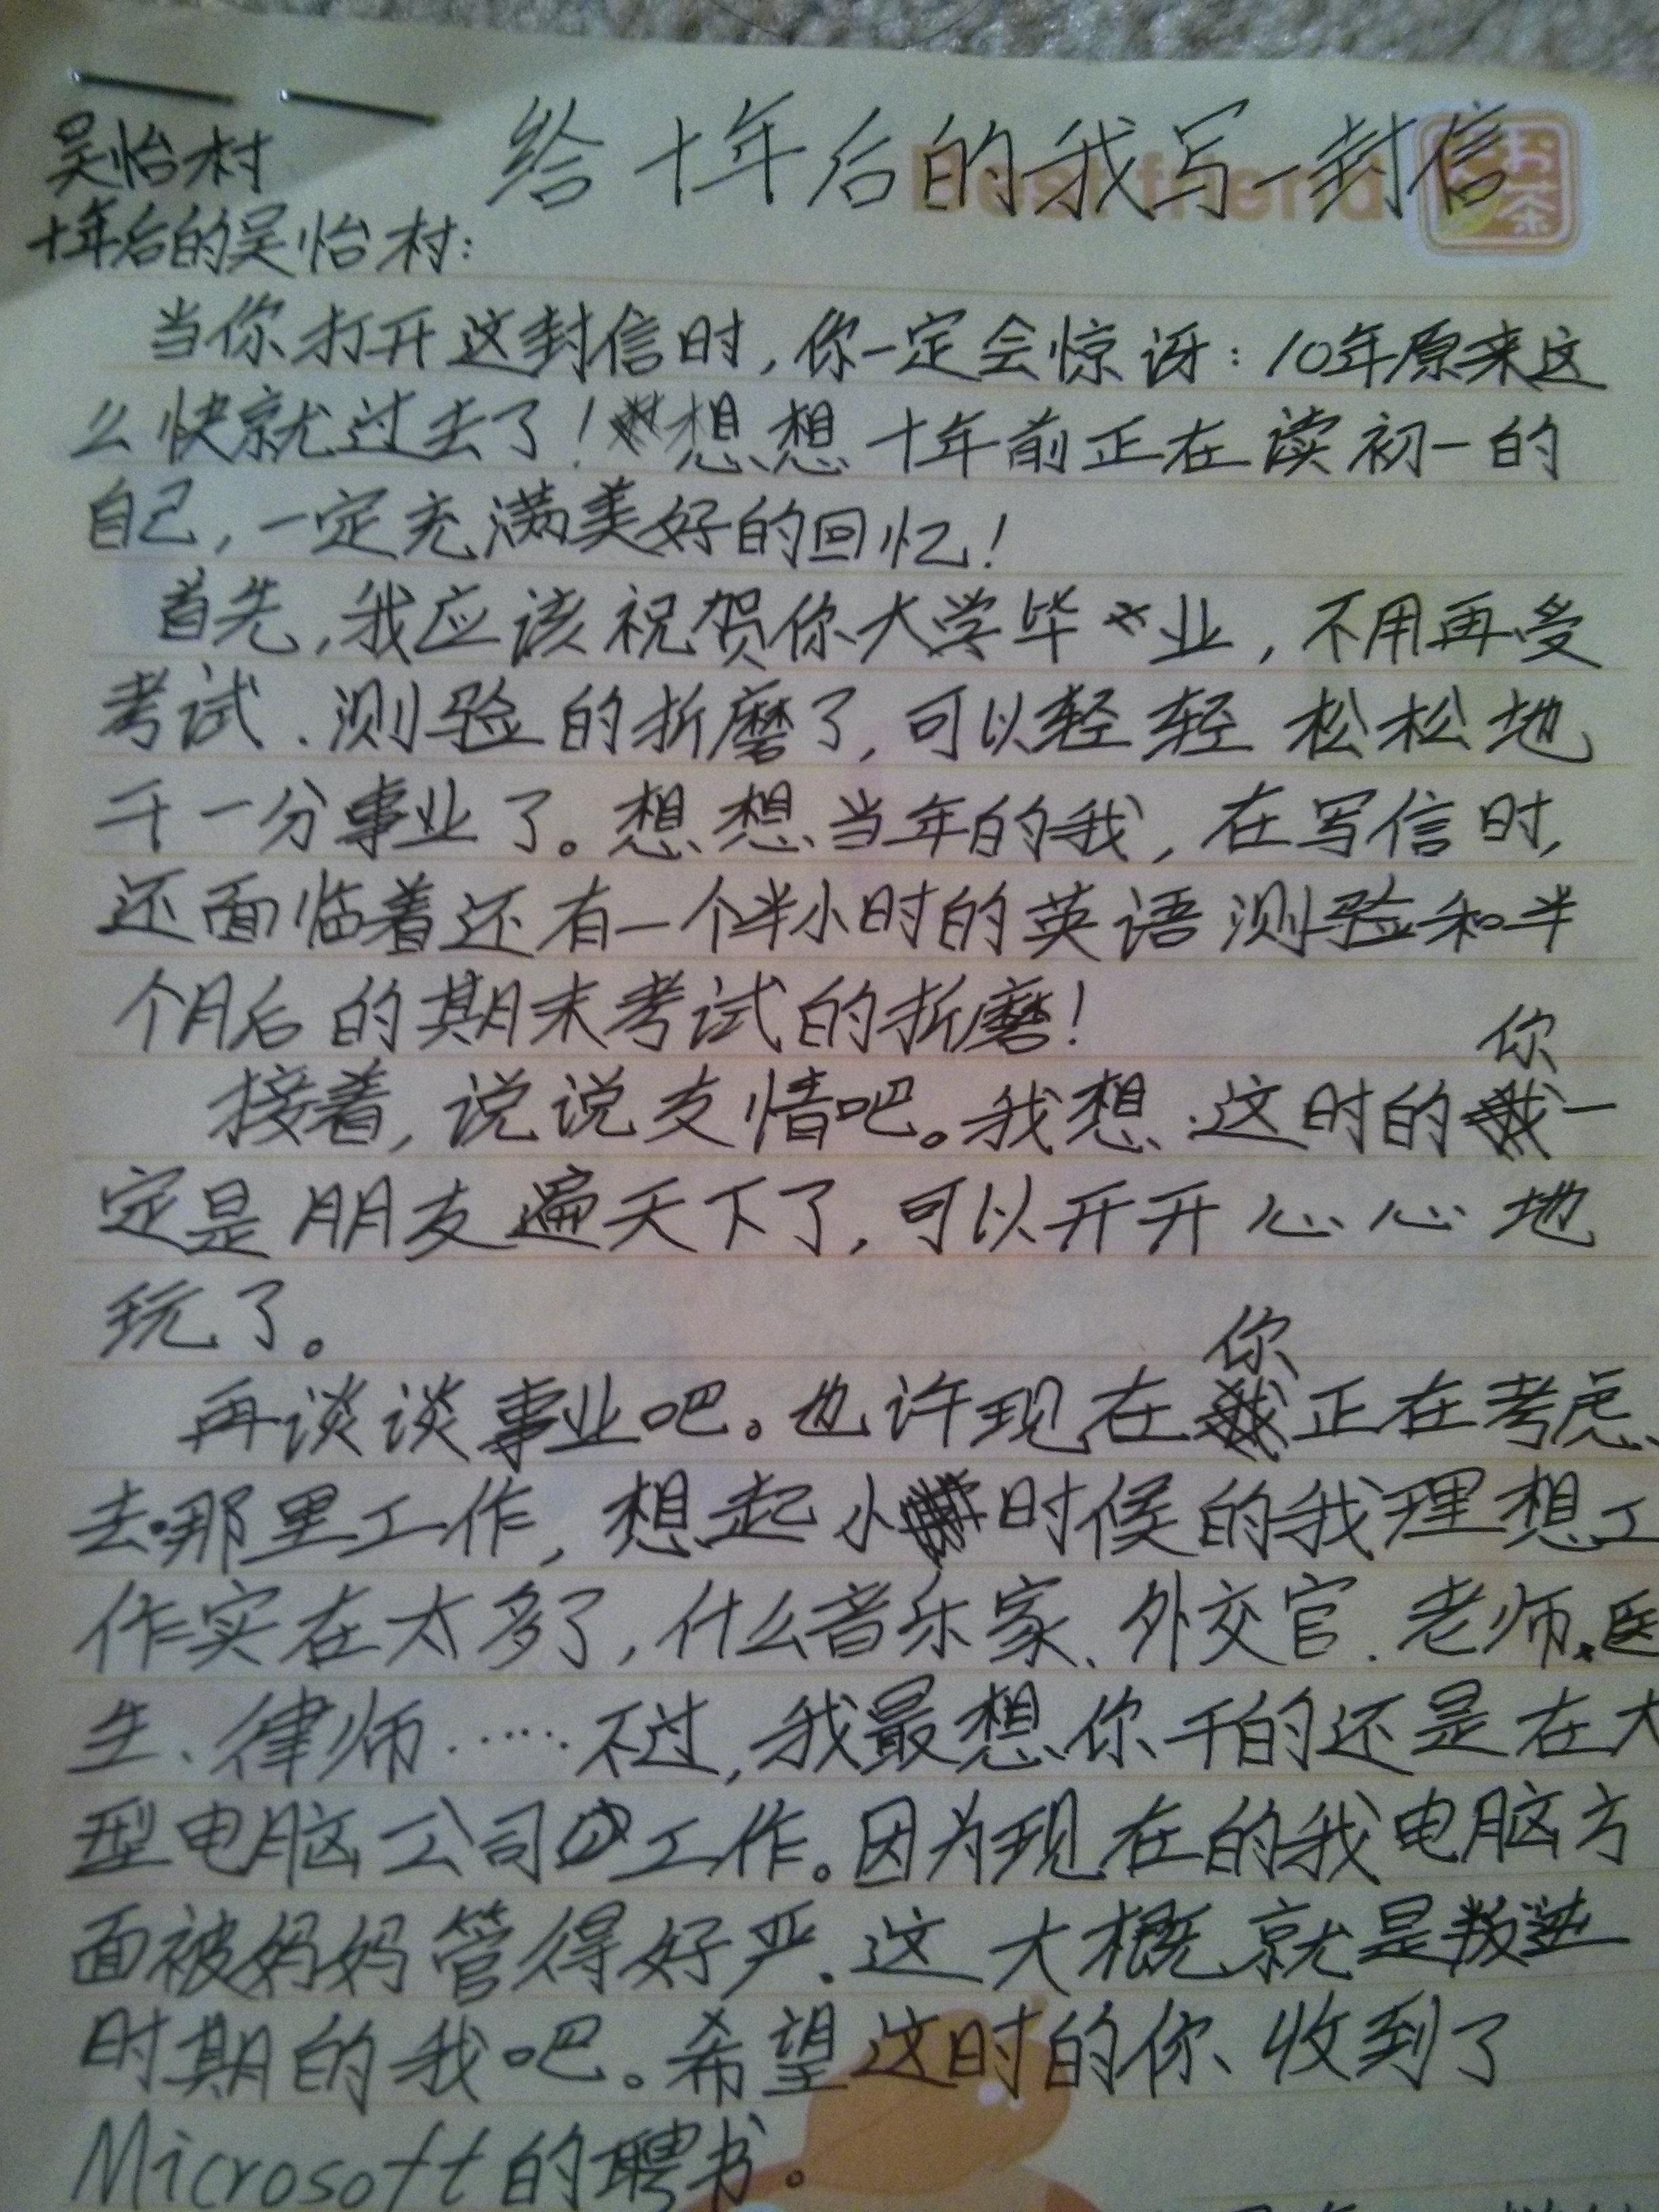 给十年后的我写一封信
Best friend
吴怡村
十年后的吴怡村：
当你打开这封信时，你一定会惊讶：10年原来这
么快就过去了！想想十年前正在读初一的
自己，一定充满美好的回忆！
首先，我应该祝贺你大学毕业，不用再受
考试、测验的折磨了，可以轻轻松松地
干一分事业了。想想当年的我，在写信时，
还面临着还有一个半小时的英语测验和半
个月后的期末考试的折磨！
接着，说说友情吧。我想，这时的你一
定是朋友遍天下了，可以开开心心地
玩了。
再谈谈事业吧。也许现在你正在考虑
去那里工作，想起小时候的我理想工
作实在太多了，什么音乐家、外交官、老师、医
生、律师……不过，我最想你干的还是在大
型电脑公司工作。因为现在的我电脑方
面被妈妈管得好严，这大概就是叛逆
时期的我吧。希望这时的你收到了
Microsoft的聘书。